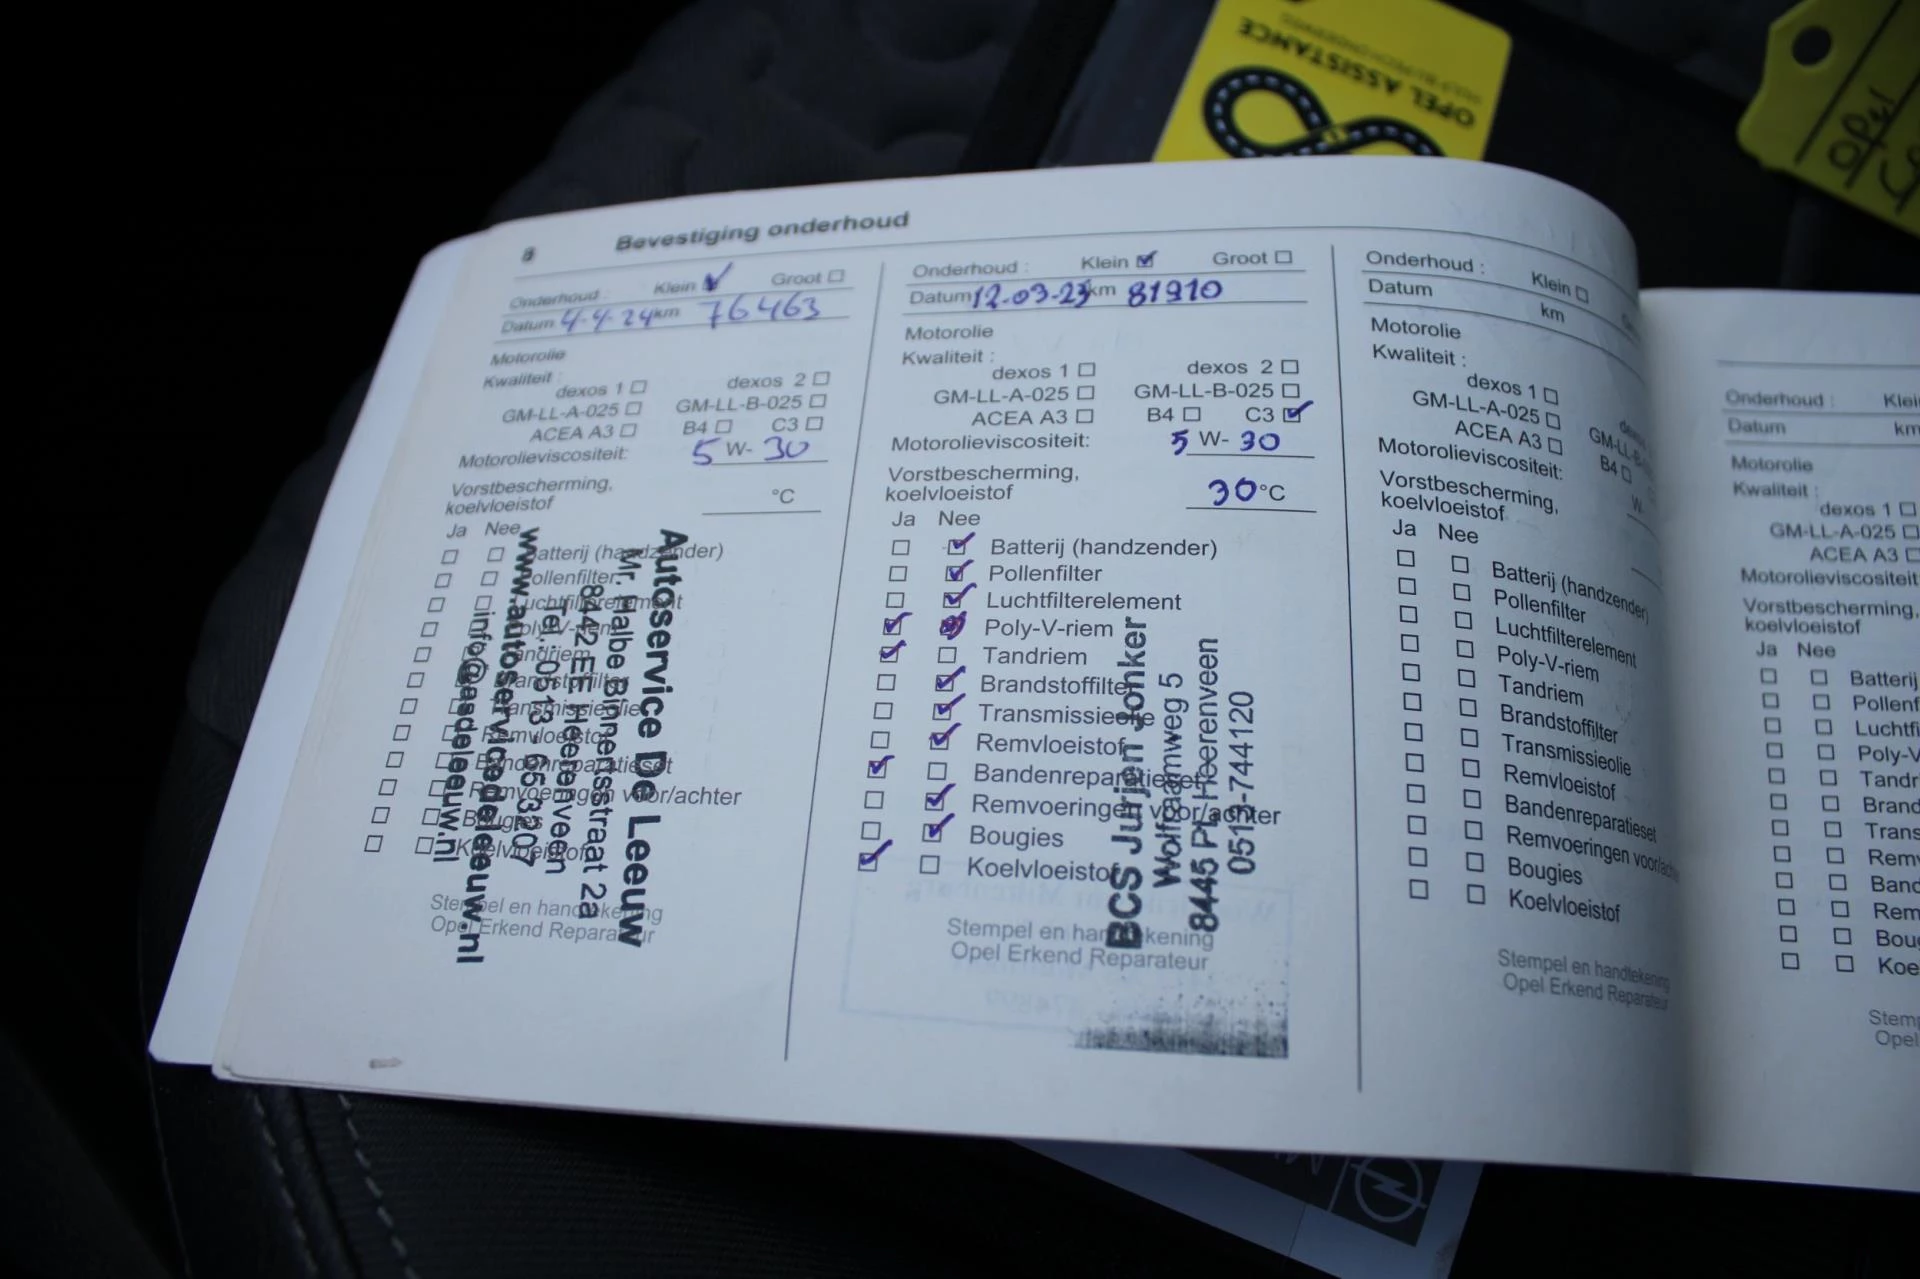 OPEL ASSISTANCE
opel
8
Bevestiging onderhoud
Onderhoud : Klein ☑ Groot ☐
Datum 4-4-24 km 76463
Motorolie
Kwaliteit :
dexos 1 ☐ dexos 2 ☐
GM-LL-A-025 ☐ GM-LL-B-025 ☐
ACEA A3 ☐ B4 ☐ C3 ☐
Motorolieviscositeit: 5 W- 30
Vorstbescherming,
koelvloeistof °C
Ja Nee
☐ ☐ Batterij (handzender)
☐ ☐ Pollenfilter
☐ ☐ Luchtfilterelement
☐ ☐ Poly-V-riem
☐ ☐ Tandriem
☐ ☐ Brandstoffilter
☐ ☐ Transmissieolie
☐ ☐ Remvloeistof
☐ ☐ Bandenreparatieset
☐ ☐ Remvoeringen voor/achter
☐ ☐ Bougies
☐ ☐ Koelvloeistof
Stempel en handtekening
Opel Erkend Reparateur
Autoservice De Leeuw
Mr. Halbe Binnertsstraat 2a
8442 EE Heerenveen
Tel.: 0513 - 653207
www.autoservicedeleeuw.nl
info@asdeleeuw.nl
Onderhoud : Klein ☑ Groot ☐
Datum 12-03-25 km 81910
Motorolie
Kwaliteit :
dexos 1 ☐ dexos 2 ☐
GM-LL-A-025 ☐ GM-LL-B-025 ☐
ACEA A3 ☐ B4 ☐ C3 ☑
Motorolieviscositeit: 5 W- 30
Vorstbescherming,
koelvloeistof 30 °C
Ja Nee
☐ ☑ Batterij (handzender)
☐ ☑ Pollenfilter
☐ ☑ Luchtfilterelement
☑ ☑ Poly-V-riem
☑ ☐ Tandriem
☐ ☑ Brandstoffilter
☐ ☑ Transmissieolie
☐ ☑ Remvloeistof
☑ ☐ Bandenreparatieset
☐ ☑ Remvoeringen voor/achter
☐ ☑ Bougies
☑ ☐ Koelvloeistof
Stempel en handtekening
Opel Erkend Reparateur
BCS Jurjen Jonker
Wolfraamweg 5
8445 PL Heerenveen
0513-744120
Onderhoud : Klein ☐
Datum km
Motorolie
Kwaliteit :
dexos 1 ☐ dexos
GM-LL-A-025 ☐ GM-LL-B
ACEA A3 ☐ B4 ☐
Motorolieviscositeit: W-
Vorstbescherming,
koelvloeistof
Ja Nee
☐ ☐ Batterij (handzender)
☐ ☐ Pollenfilter
☐ ☐ Luchtfilterelement
☐ ☐ Poly-V-riem
☐ ☐ Tandriem
☐ ☐ Brandstoffilter
☐ ☐ Transmissieolie
☐ ☐ Remvloeistof
☐ ☐ Bandenreparatieset
☐ ☐ Remvoeringen voor/achter
☐ ☐ Bougies
☐ ☐ Koelvloeistof
Stempel en handtekening
Opel Erkend Reparateur
Onderhoud : Klei
Datum km
Motorolie
Kwaliteit :
dexos 1 ☐
GM-LL-A-025 ☐
ACEA A3 ☐
Motorolieviscositeit:
Vorstbescherming,
koelvloeistof
Ja Nee
☐ ☐ Batterij
☐ ☐ Pollenf
☐ ☐ Luchtfi
☐ ☐ Poly-V
☐ ☐ Tandr
☐ ☐ Brand
☐ ☐ Trans
☐ ☐ Remv
☐ ☐ Band
☐ ☐ Rem
☐ ☐ Bou
☐ ☐ Koe
Stem
Opel